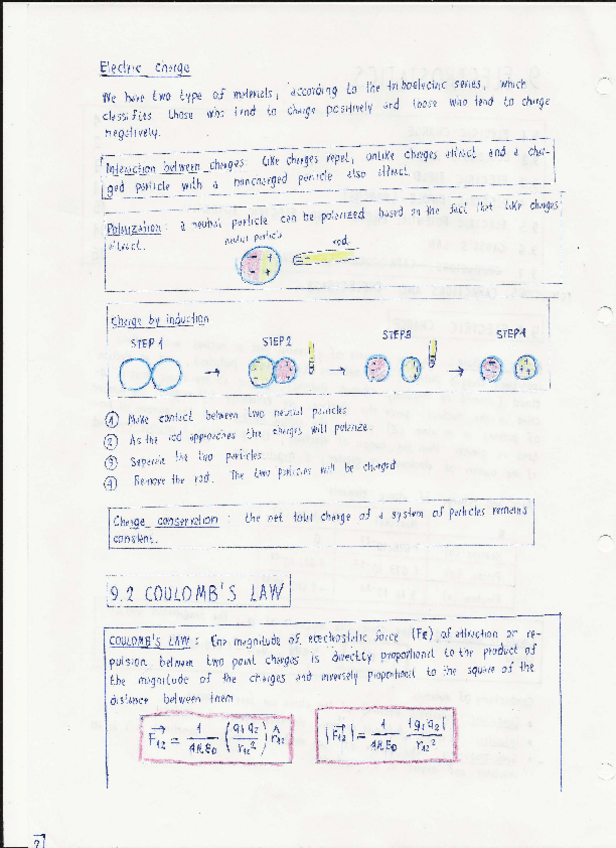 Electric charge
We have two type of materials, according to the triboelectric series, which
classifies those who tend to charge positively and those who tend to charge
negatively.
Interaction between charges: Like charges repel, unlike charges attract and a char-
ged particle with a noncharged particle also attract.
Polarization: a neutral particle can be polarized based on the fact that like charges
attract.
neutral particle
rod
Charge by induction
STEP 1 STEP 2 STEP 3 STEP 4
① Make contact between two neutral particles
② As the rod approaches the charges will polarize
③ Separate the two particles.
④ Remove the rod. The two particles will be charged
Charge conservation: the net total charge of a system of particles remains
constant.
9.2 COULOMB'S LAW
COULOMB'S LAW: The magnitude of electrostatic force (Fe) of attraction or re-
pulsion between two point charges is directly proportional to the product of
the magnitude of the charges and inversely proportional to the square of the
distance between them
F₁₂ = 1/4πε₀ (q₁q₂/r₁₂²) r̂₁₂ |F₁₂| = 1/4πε₀ |q₁q₂|/r₁₂²